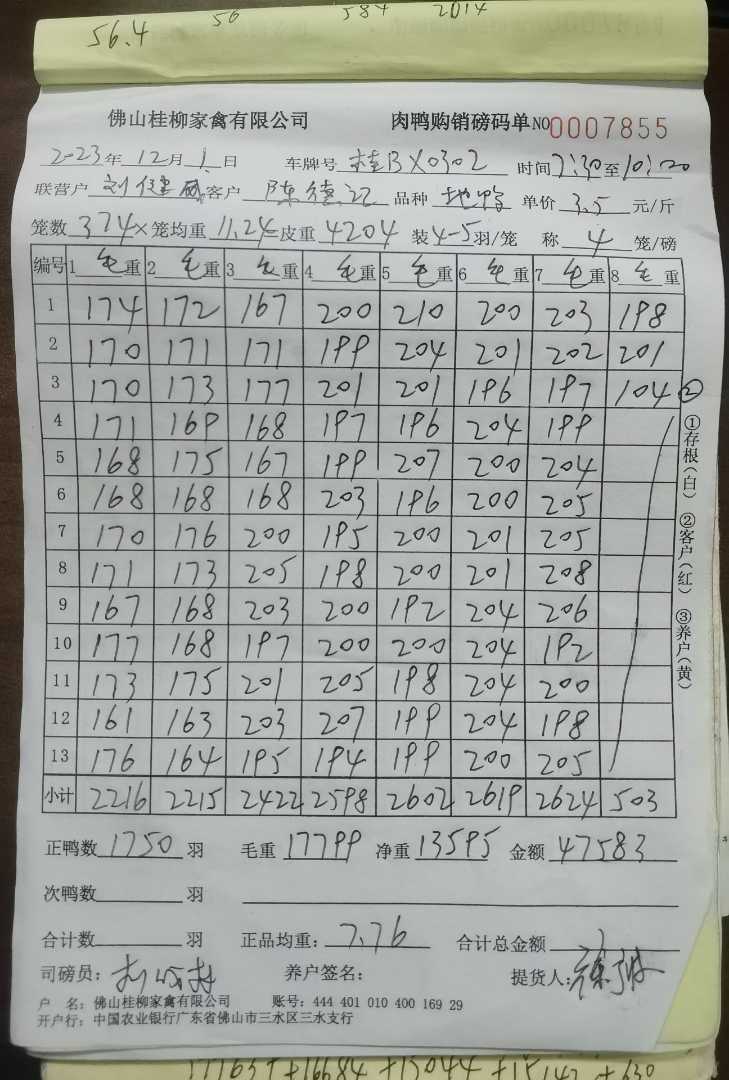 56.4 56 584 2014
佛山桂柳家禽有限公司 肉鸭购销磅码单 NO 0007855
2023年 12月 1日 车牌号 桂BX0302 时间 7:30至10:20
联营户 刘 客户 陈德 品种 地鸭 单价 3.5 元/斤
笼数 374×笼均重 11.24=皮重 4204 装4-5羽/笼 称 4 笼/磅
编号 1 毛重 2 毛重 3 毛重 4 毛重 5 毛重 6 毛重 7 毛重 8 毛重
1 174 172 167 200 210 200 203 198
2 170 171 171 199 204 201 202 201
3 170 173 177 201 201 196 197 104 ②
4 171 169 168 197 196 204 199
5 168 175 167 199 207 200 204
6 168 168 168 203 196 200 205
7 170 176 200 195 200 201 205
8 171 173 205 198 200 201 208
9 167 168 203 200 192 204 206
10 177 168 197 200 200 204 192
11 173 175 201 205 198 204 200
12 161 163 203 207 199 204 198
13 176 164 195 194 199 200 205
小计 2216 2215 2422 2598 2602 2619 2624 503
①存根(白) ②客户(红) ③养户(黄)
正鸭数 1750 羽 毛重 17799 净重 13595 金额 47583
次鸭数 羽
合计数 羽 正品均重: 7.76 合计总金额
司磅员: 养户签名: 提货人:
户 名: 佛山桂柳家禽有限公司 账号: 444 401 010 400 169 29
开户行: 中国农业银行广东省佛山市三水区三水支行
+16684+13044+15142+630